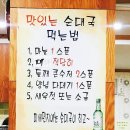 맛있는 순대국
먹는법
1. 마늘 1스푼
2. 적당히
3. 들깨 큰수저 2스푼
4. 양념 다대기 1스푼
5. 새우젓 또는 소금